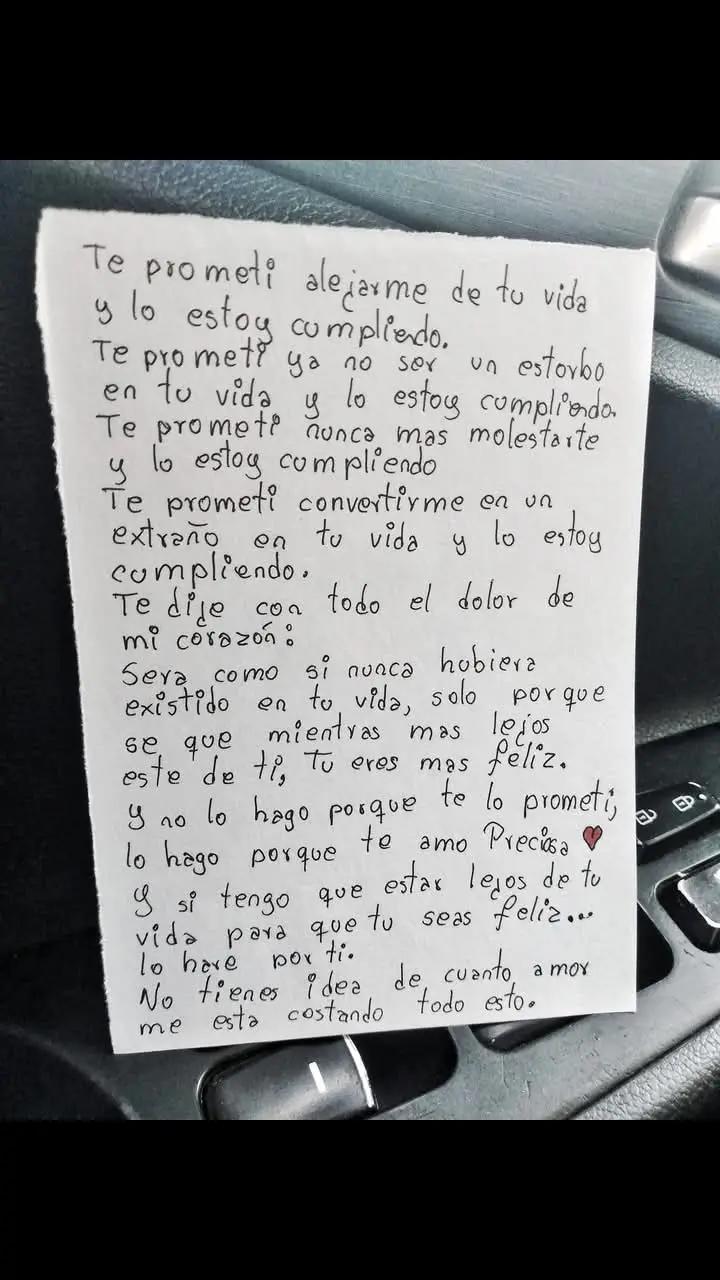 Te prometi alejarme de tu vida
y lo estoy cumpliendo.
Te prometi ya no ser un estorbo
en tu vida y lo estoy cumpliendo.
Te prometi nunca mas molestarte
y lo estoy cumpliendo
Te prometi convertirme en un
extraño en tu vida y lo estoy
cumpliendo.
Te dije con todo el dolor de
mi corazón:
Sera como si nunca hubiera
existido en tu vida, solo porque
se que mientras mas lejos
este de ti, Tu eres mas feliz.
y no lo hago porque te lo prometi,
lo hago porque te amo Preciosa ❤
y si tengo que estar lejos de tu
vida para que tu seas feliz...
lo hare por ti.
No tienes idea de cuanto amor
me esta costando todo esto.